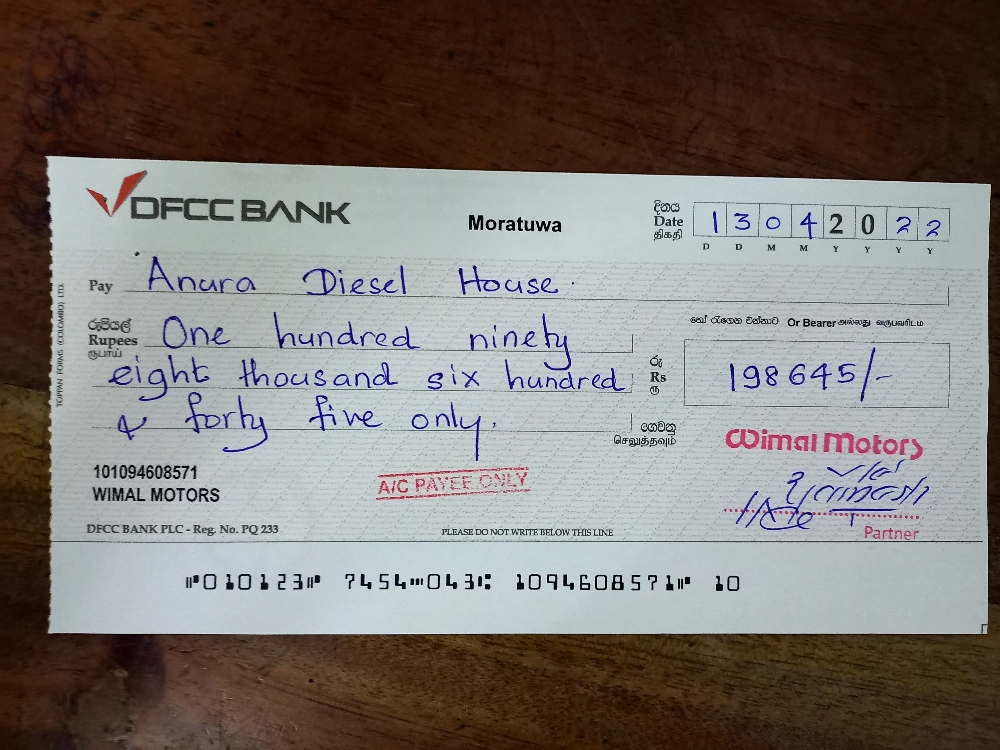 DFCC BANK
Moratuwa
දිනය
Date
திகதி
1 3 0 4 2 0 2 2
D D M M Y Y Y Y
Pay Anura Diesel House.
හෝ රැගෙන එන්නාට Or Bearer அல்லது வருபவரிடம்
රුපියල්
Rupees
ரூபாய்
One hundred ninety
eight thousand six hundred
& forty five only.
රු
Rs
ரூ
198645/-
ගෙවනු
செலுத்தவும்
TOPPAN FORMS (COLOMBO) LTD.
101094608571
WIMAL MOTORS
A/C PAYEE ONLY
Wimal Motors
Partner
DFCC BANK PLC - Reg. No. PQ 233
PLEASE DO NOT WRITE BELOW THIS LINE
⑈010123⑈ 7454⑉043⑆ 1094608571⑈ 10